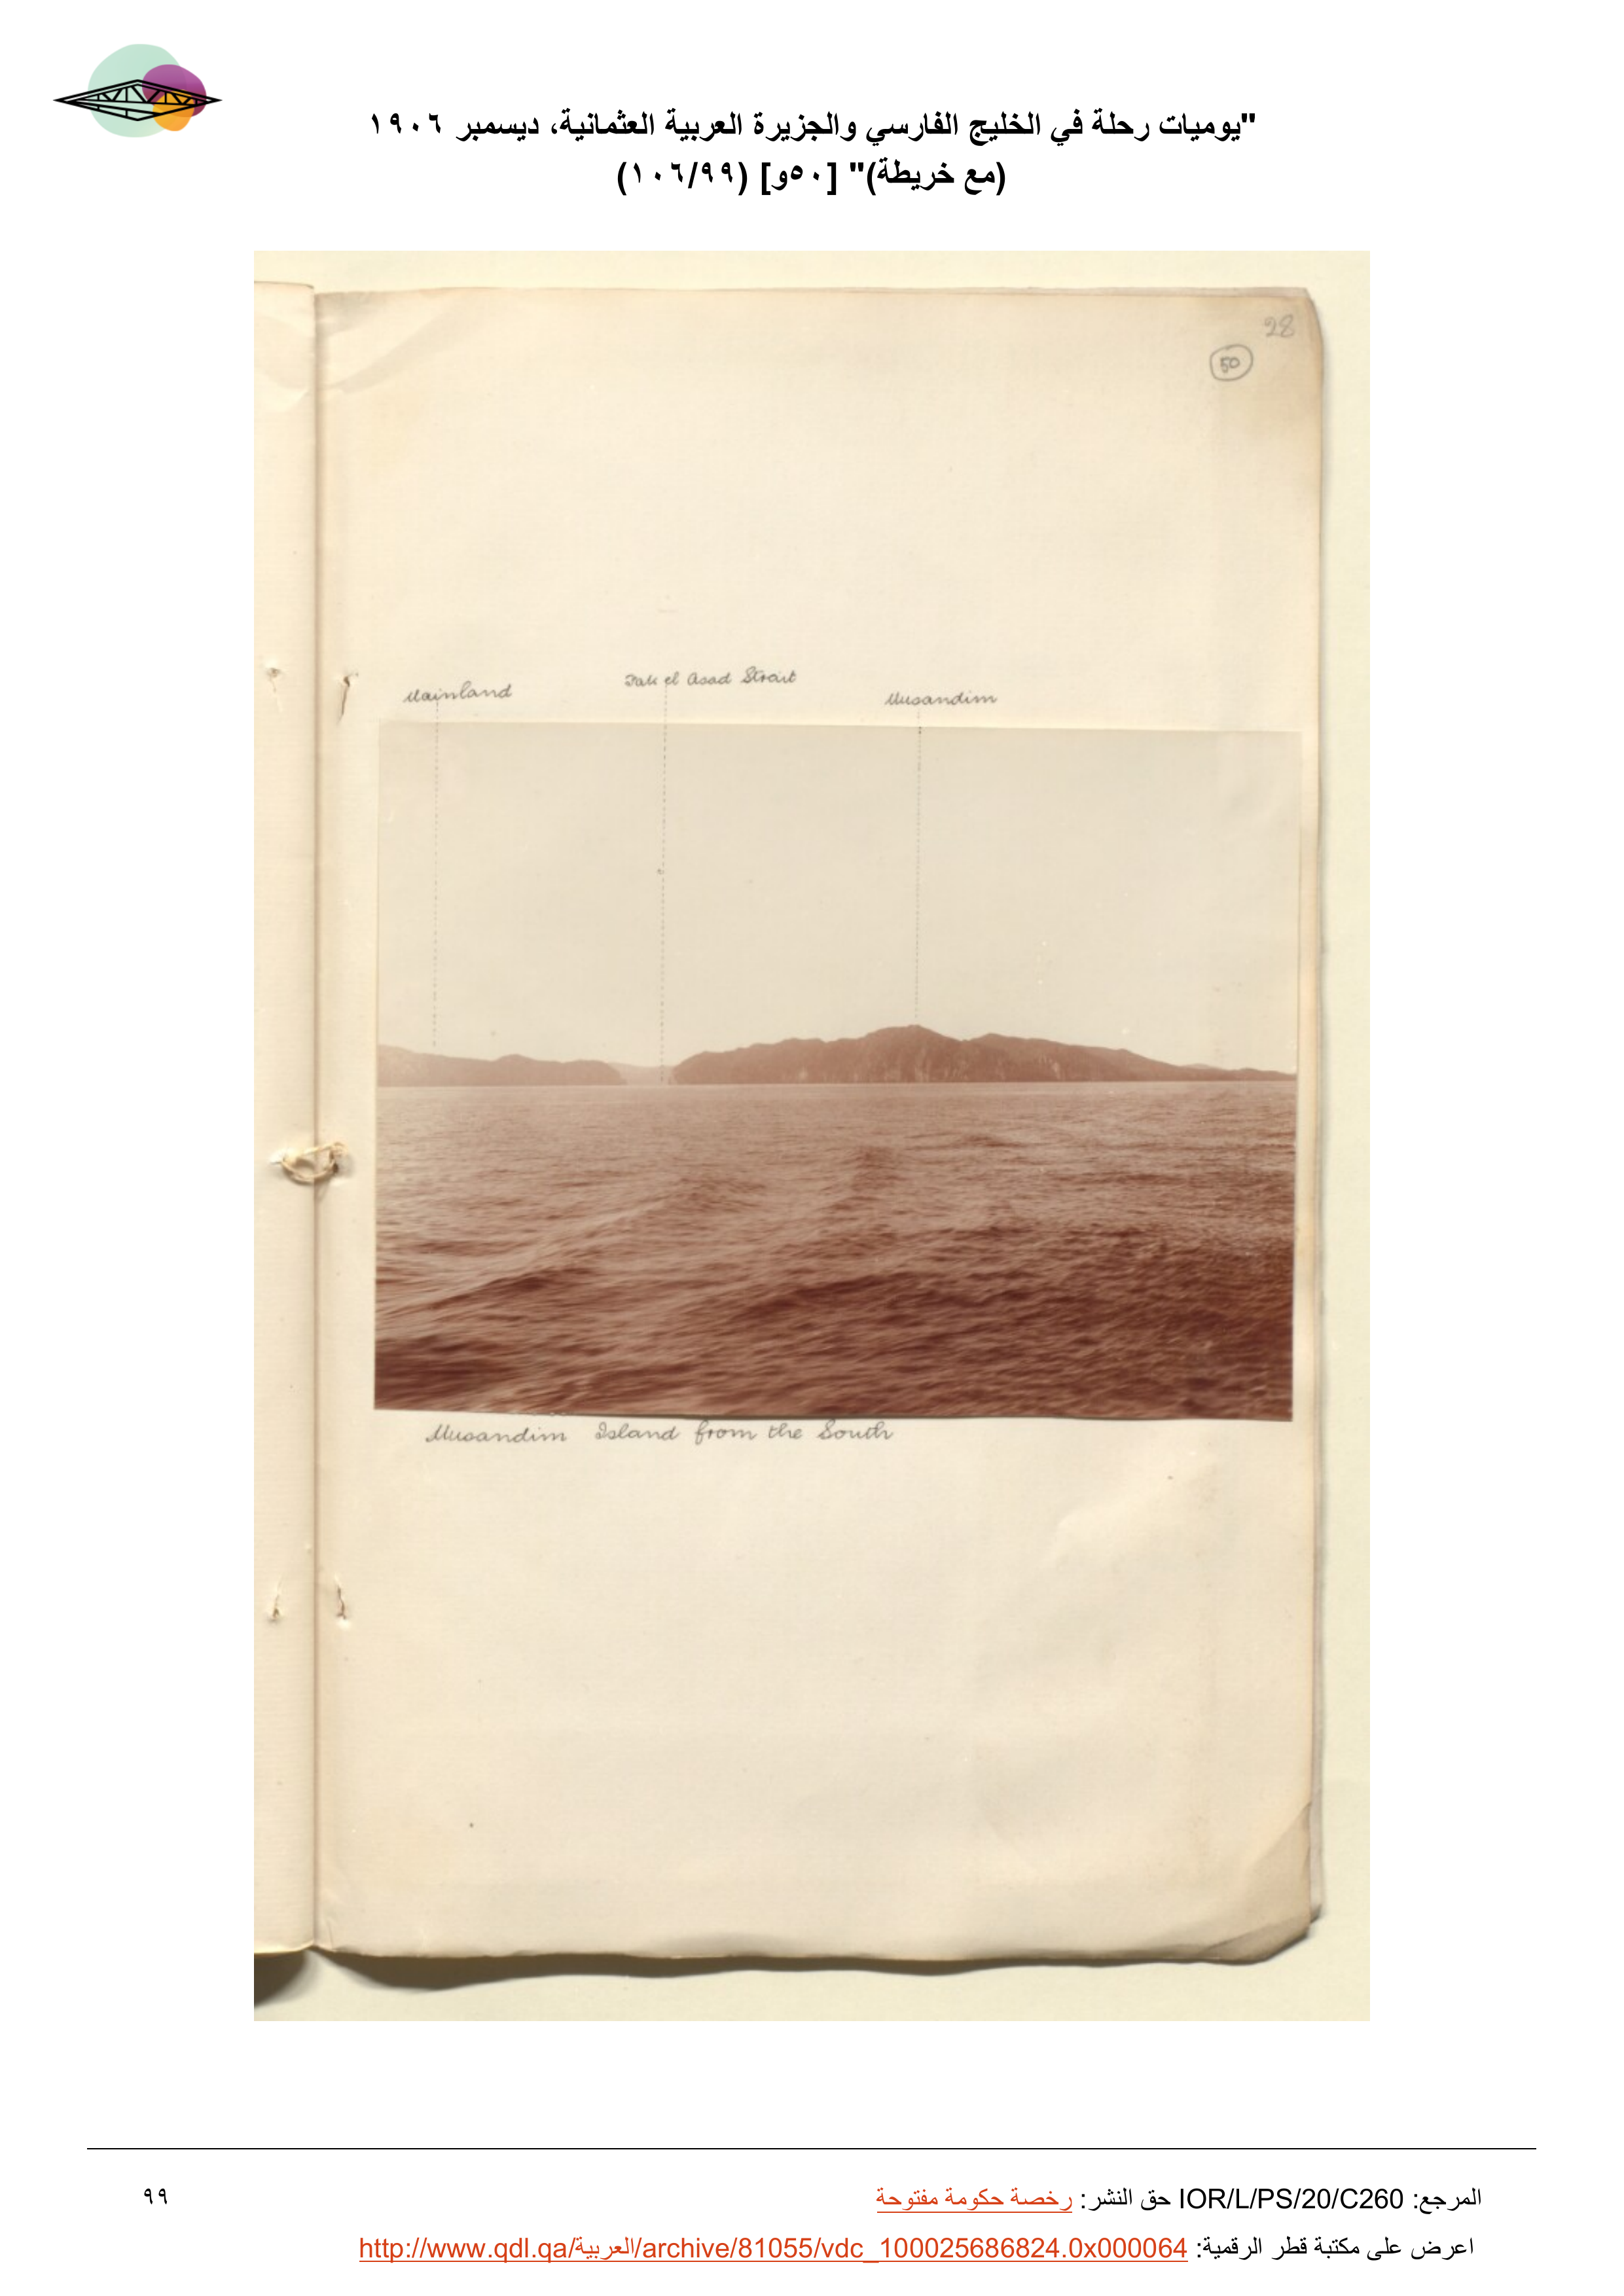 "يوميات رحلة في الخليج الفارسي والجزيرة العربية العثمانية، ديسمبر ١٩٠٦
(مع خريطة)" [٥٠و] (١٠٦/٩٩)
28
50
Mainland
Fak el Asad Strait
Musandim
Musandim Island from the South
المرجع: IOR/L/PS/20/C260 حق النشر: رخصة حكومة مفتوحة
٩٩
اعرض على مكتبة قطر الرقمية: http://www.qdl.qa/العربية/archive/81055/vdc_100025686824.0x000064